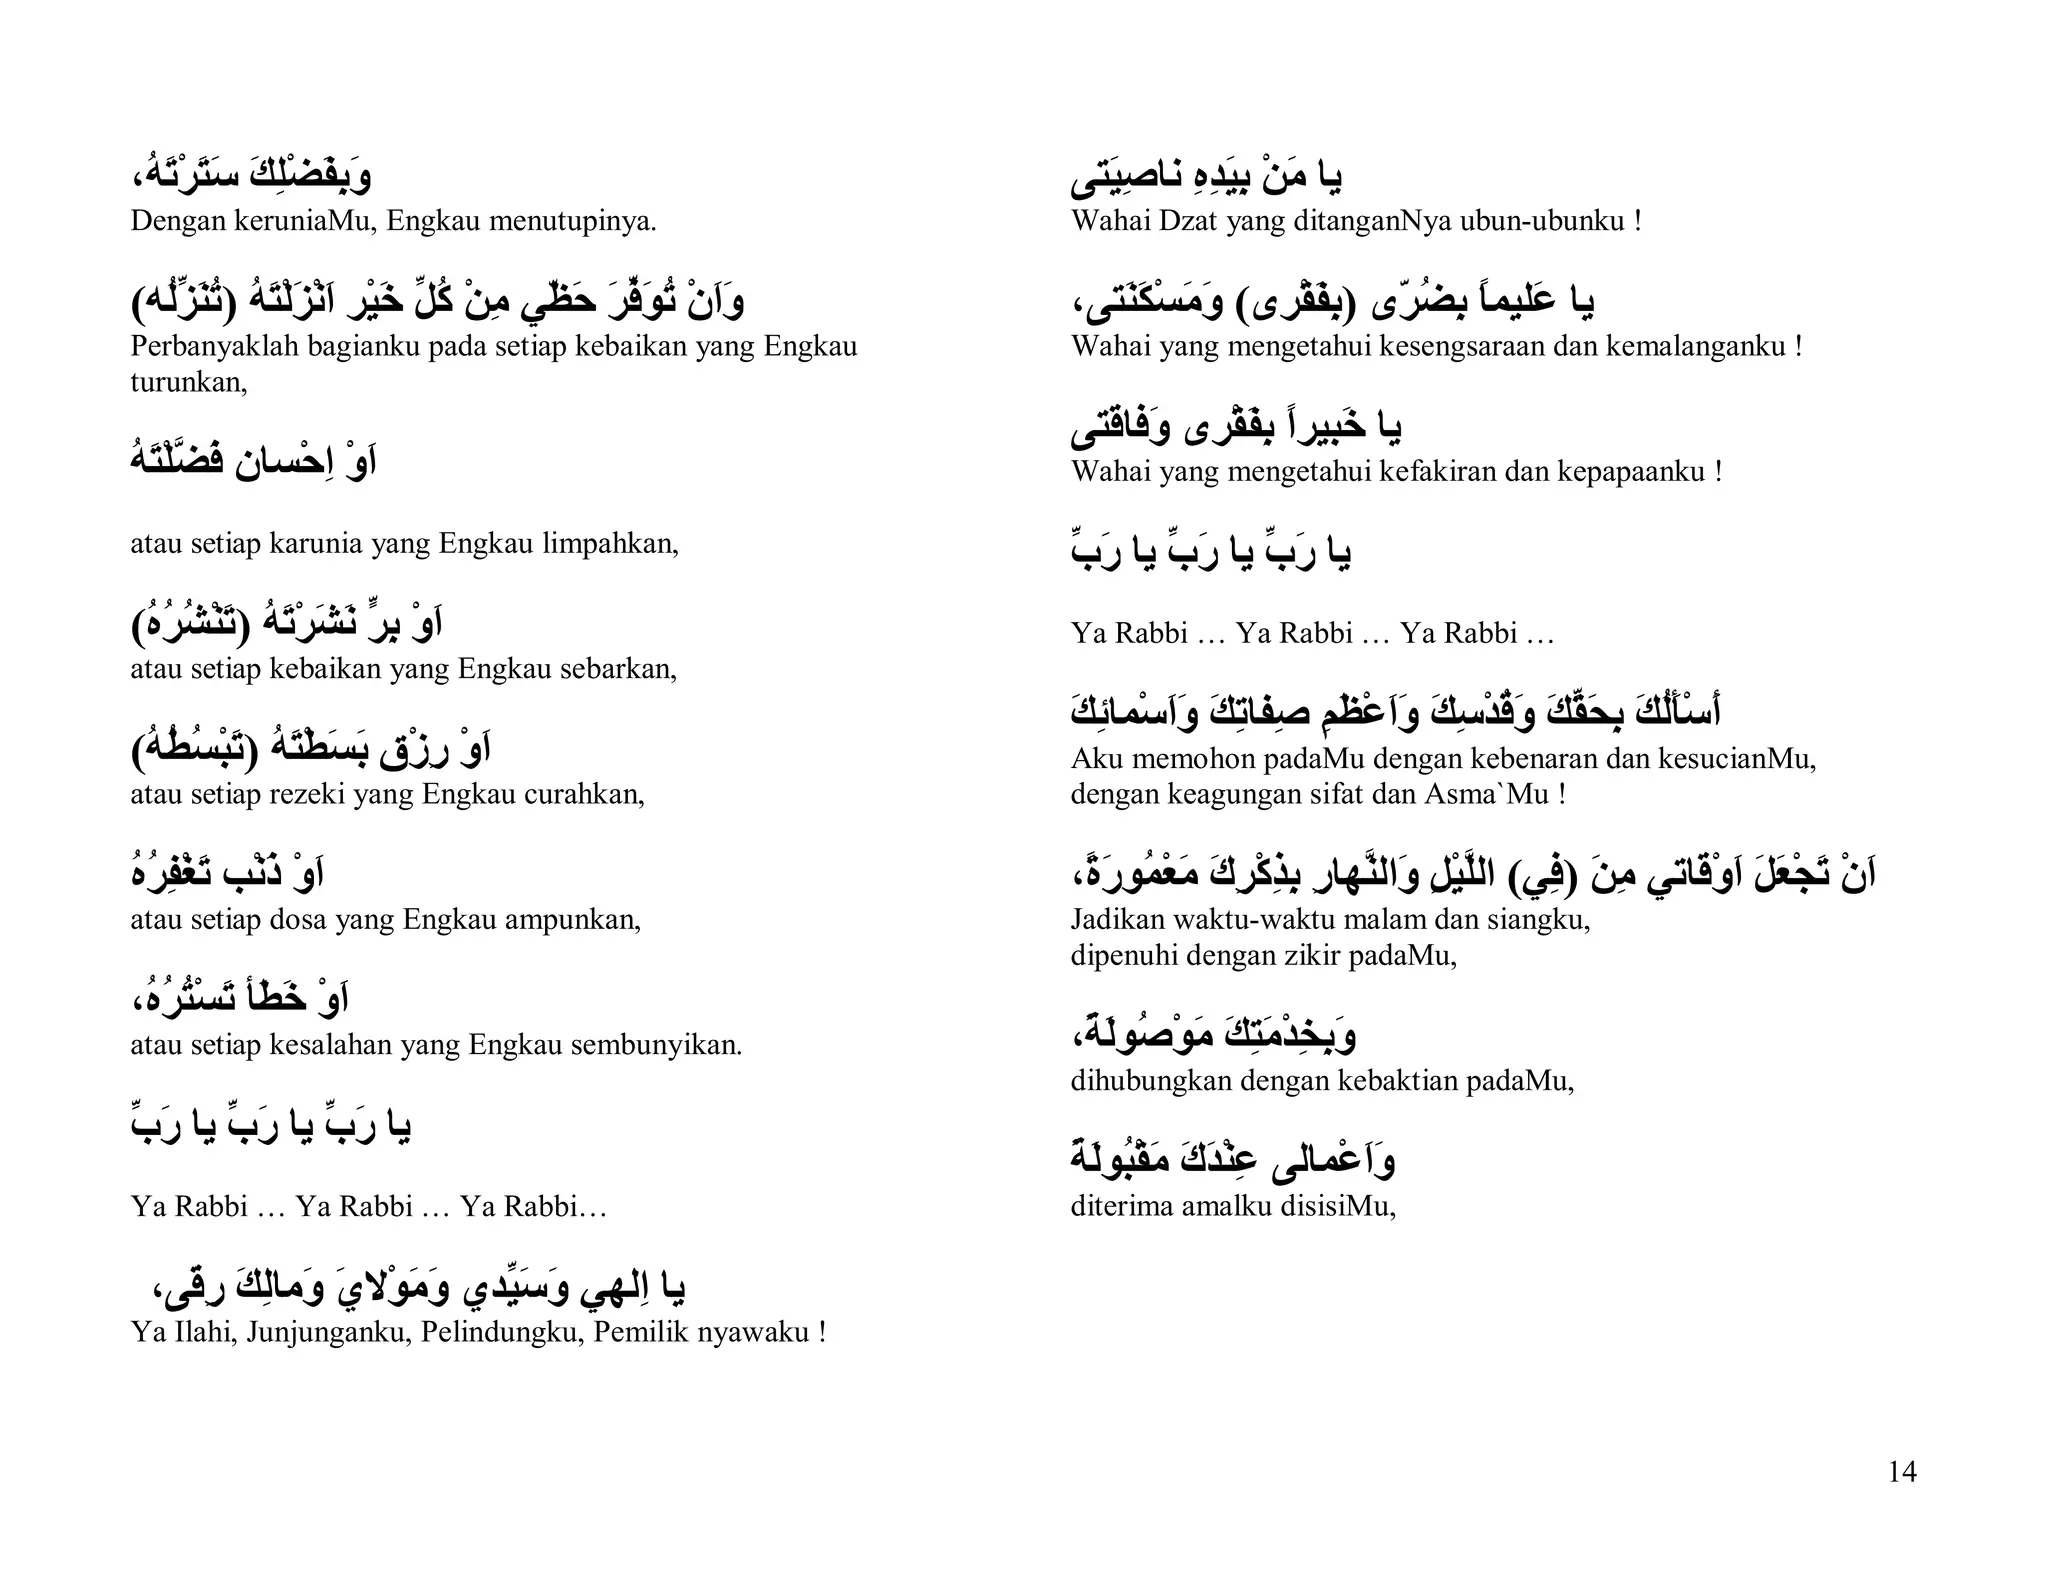 وَبِفَضْلِكَ سَتَرْتَهُ،
Dengan keruniaMu, Engkau menutupinya.
وَاَنْ تُوَفِّرَ حَظّي مِنْ كُلِّ خَيْر اَنْزَلْتَهُ (تُنَزِّلُه)
Perbanyaklah bagianku pada setiap kebaikan yang Engkau
turunkan,
اَوْ اِحْسان فَضَّلْتَهُ
atau setiap karunia yang Engkau limpahkan,
اَوْ بِرٍّ نَشَرْتَهُ (تَنْشُرُهُ)
atau setiap kebaikan yang Engkau sebarkan,
اَوْ رِزْق بَسَطْتَهُ (تَبْسُطُهُ)
atau setiap rezeki yang Engkau curahkan,
اَوْ ذَنْب تَغْفِرُهُ
atau setiap dosa yang Engkau ampunkan,
اَوْ خَطَأ تَسْتُرُهُ،
atau setiap kesalahan yang Engkau sembunyikan.
يا رَبِّ يا رَبِّ يا رَبِّ
Ya Rabbi … Ya Rabbi … Ya Rabbi…
يا اِلهي وَسَيِّدي وَمَوْلايَ وَمالِكَ رِقّى،
Ya Ilahi, Junjunganku, Pelindungku, Pemilik nyawaku !
يا مَنْ بِيَدِهِ ناصِيَتى
Wahai Dzat yang ditanganNya ubun-ubunku !
يا عَليماً بِضُرّى (بِفَقْرى) وَمَسْكَنَتى،
Wahai yang mengetahui kesengsaraan dan kemalanganku !
يا خَبيراً بِفَقْرى وَفاقَتى
Wahai yang mengetahui kefakiran dan kepapaanku !
يا رَبِّ يا رَبِّ يا رَبِّ
Ya Rabbi … Ya Rabbi … Ya Rabbi …
أَسْأَلُكَ بِحَقِّكَ وَقُدْسِكَ وَاَعْظَمِ صِفاتِكَ وَاَسْمائِكَ
Aku memohon padaMu dengan kebenaran dan kesucianMu,
dengan keagungan sifat dan Asma`Mu !
اَنْ تَجْعَلَ اَوْقاتي مِنَ (فِي) اللَّيْلِ وَالنَّهارِ بِذِكْرِكَ مَعْمُورَةً،
Jadikan waktu-waktu malam dan siangku,
dipenuhi dengan zikir padaMu,
وَبِخِدْمَتِكَ مَوْصُولَةً،
dihubungkan dengan kebaktian padaMu,
وَاَعْمالى عِنْدَكَ مَقْبُولَةً
diterima amalku disisiMu,
14